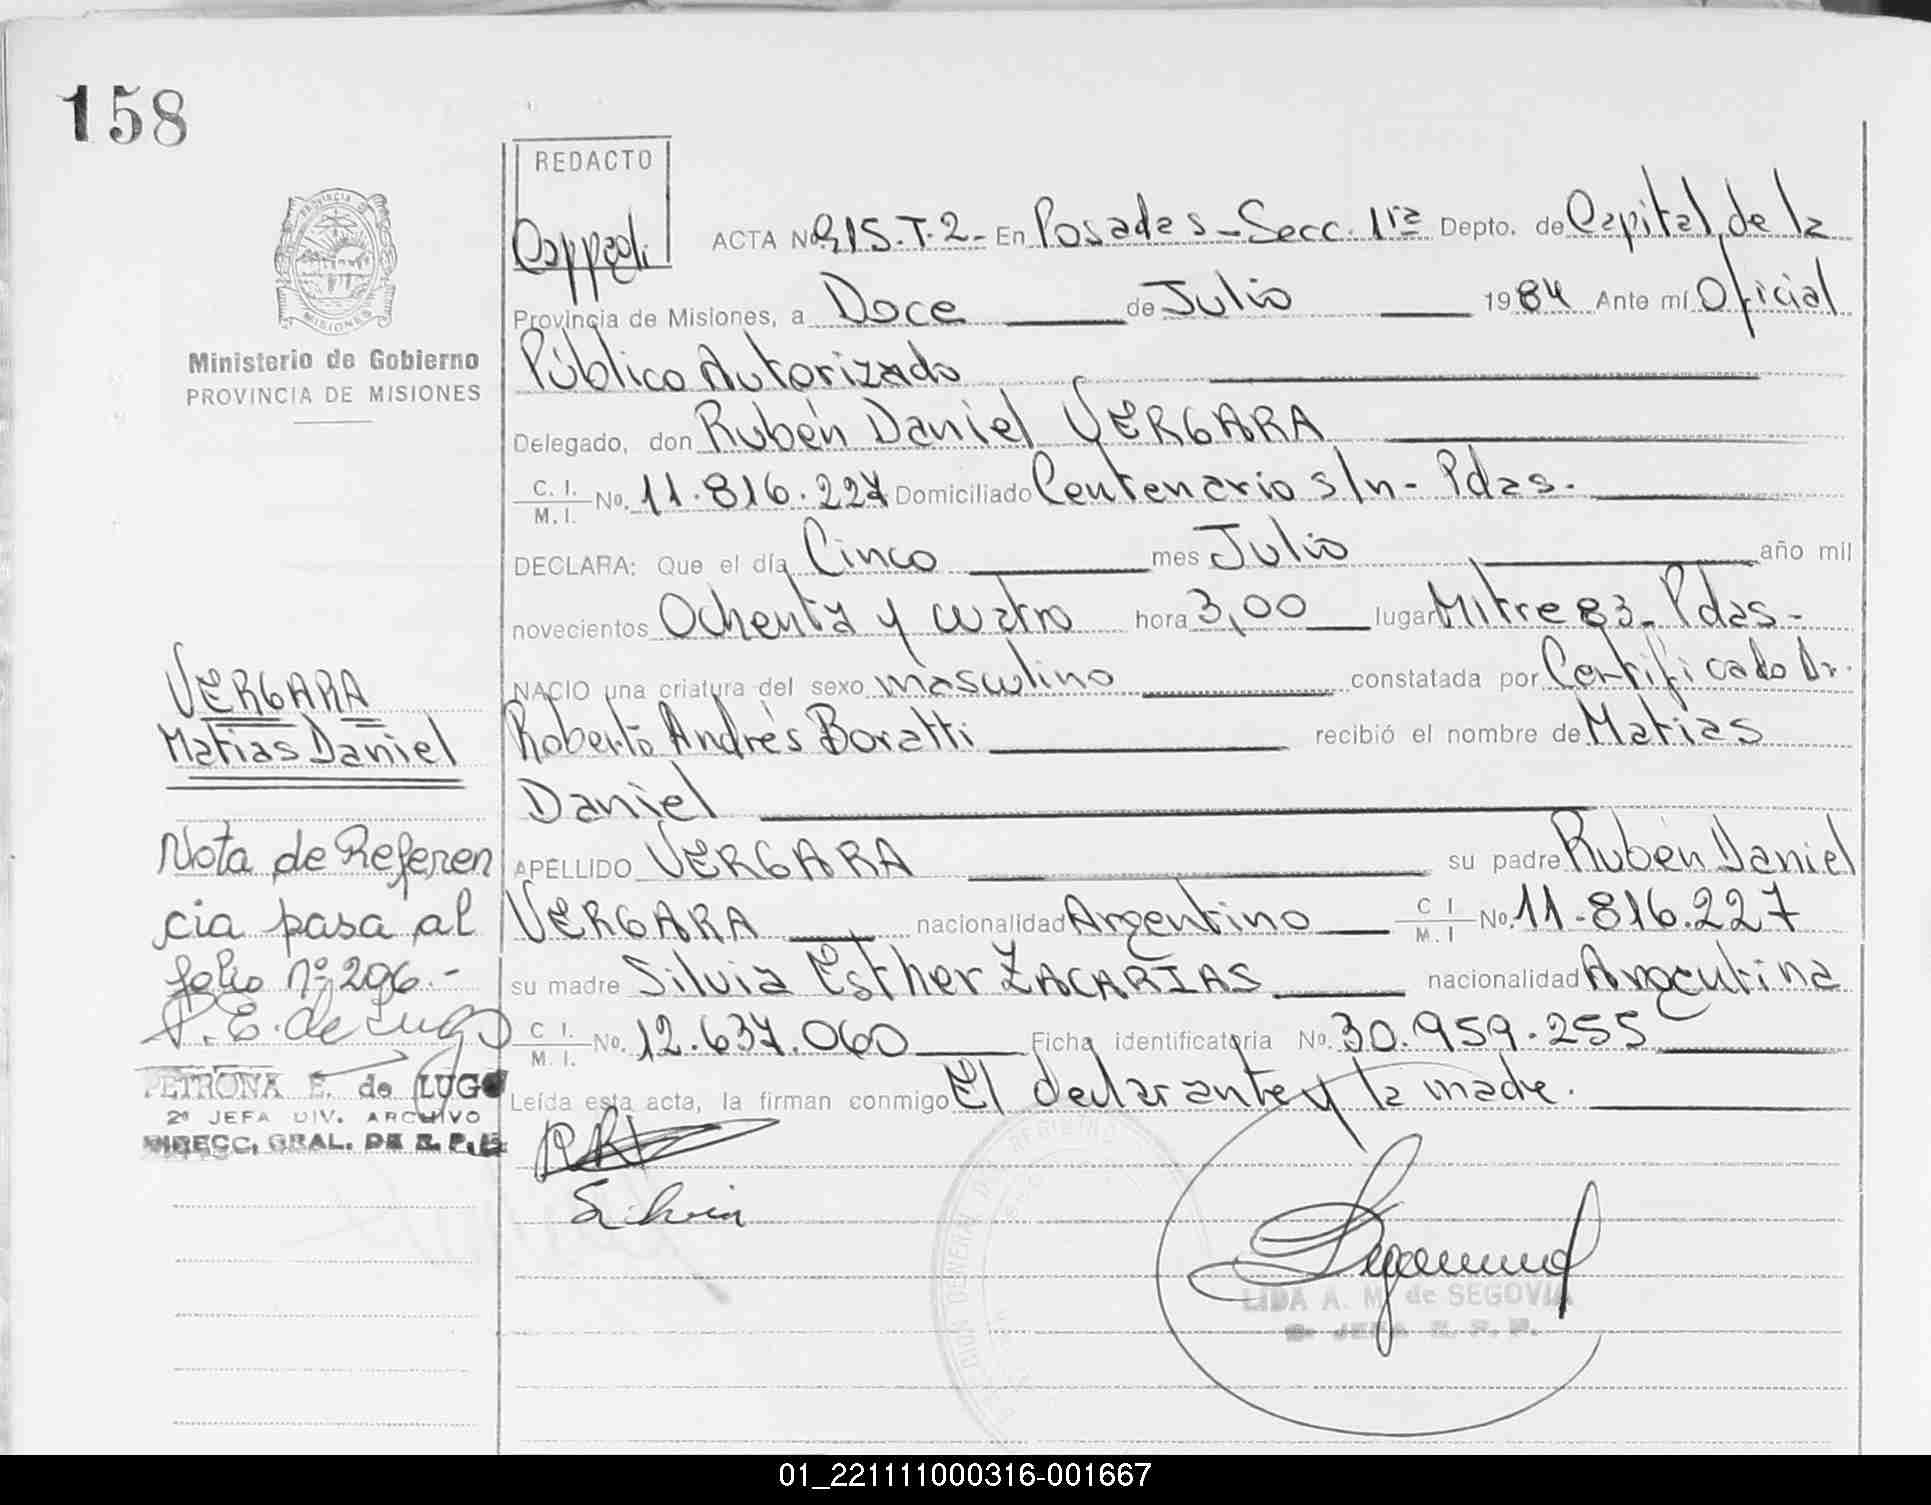 158
REDACTO
Cappeli
ACTA Nº 915.T.2- En Posadas - Secc. 1ra Depto. de Capital, de la
Provincia de Misiones, a Doce de Julio 1984 Ante mí Oficial
Público Autorizado
Delegado, don Rubén Daniel VERGARA
C. I. M. I. No. 11.816.227 Domiciliado Centenario s/n - Pdas.
DECLARA: Que el día Cinco mes Julio año mil
novecientos Ochenta y cuatro hora 3,00 lugar Mitre 83 - Pdas -
NACIO una criatura del sexo masculino constatada por Certificado Dr.
Roberto Andrés Boratti recibió el nombre de Matias
Daniel
APELLIDO VERGARA su padre Rubén Daniel
VERGARA nacionalidad Argentino C I M. I No. 11.816.227
su madre Silvia Esther ZACARIAS nacionalidad Argentina
C I. M. I. No. 12.637.060 Ficha identificatoria No. 30.959.255
Leída esta acta, la firman conmigo El declarante y la madre.
Silvia
LIDA A. M. de SEGOVIA
PROVINCIA DE
MISIONES
Ministerio de Gobierno
PROVINCIA DE MISIONES
VERGARA
Matias Daniel
Nota de Referen
cia pasa al
folio nº 296.-
P. E. de Lugo
PETRONA E. de LUGO
2ª JEFA DIV. ARCHIVO
DIRECC. GRAL. DE R. P.
01_221111000316-001667